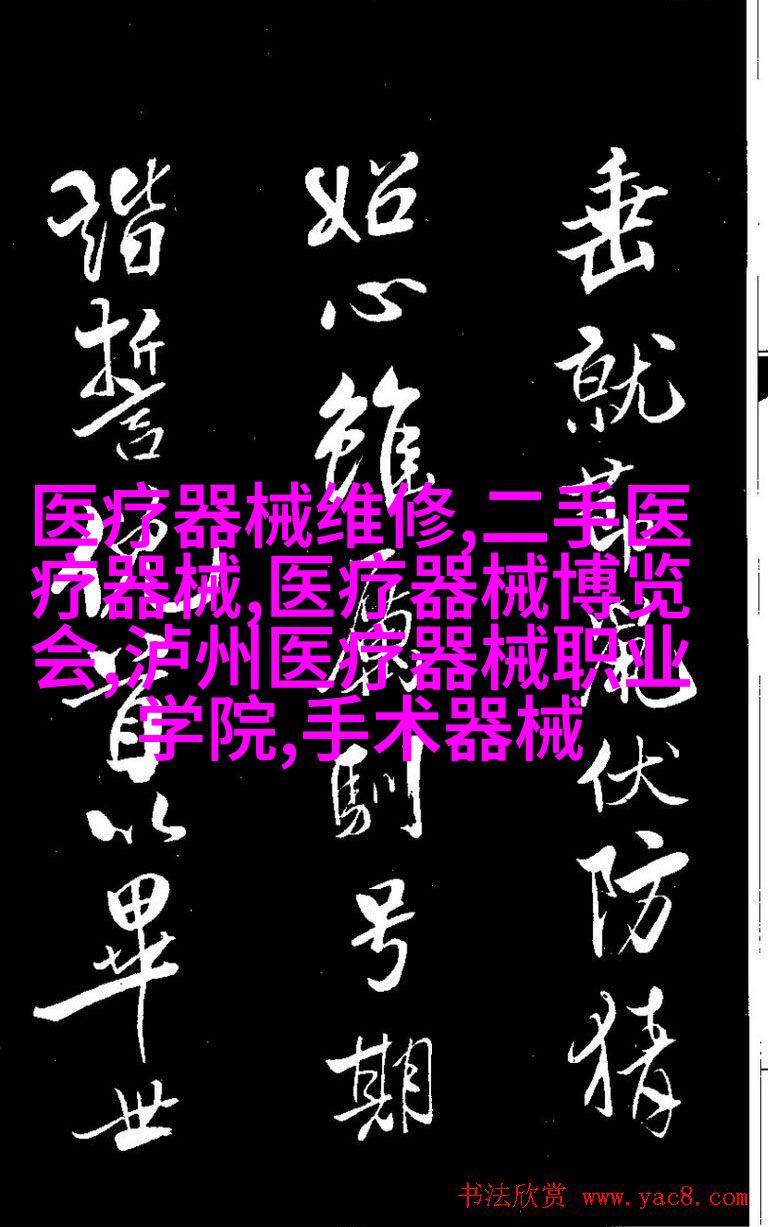 垂就鼠伏防猜
妬心雖馴号期
諧誓首以畢世
医疗器械维修,二手医
疗器械,医疗器械博览
会,泸州医疗器械职业
学院,手术器械
书法欣赏 www.yac8.com